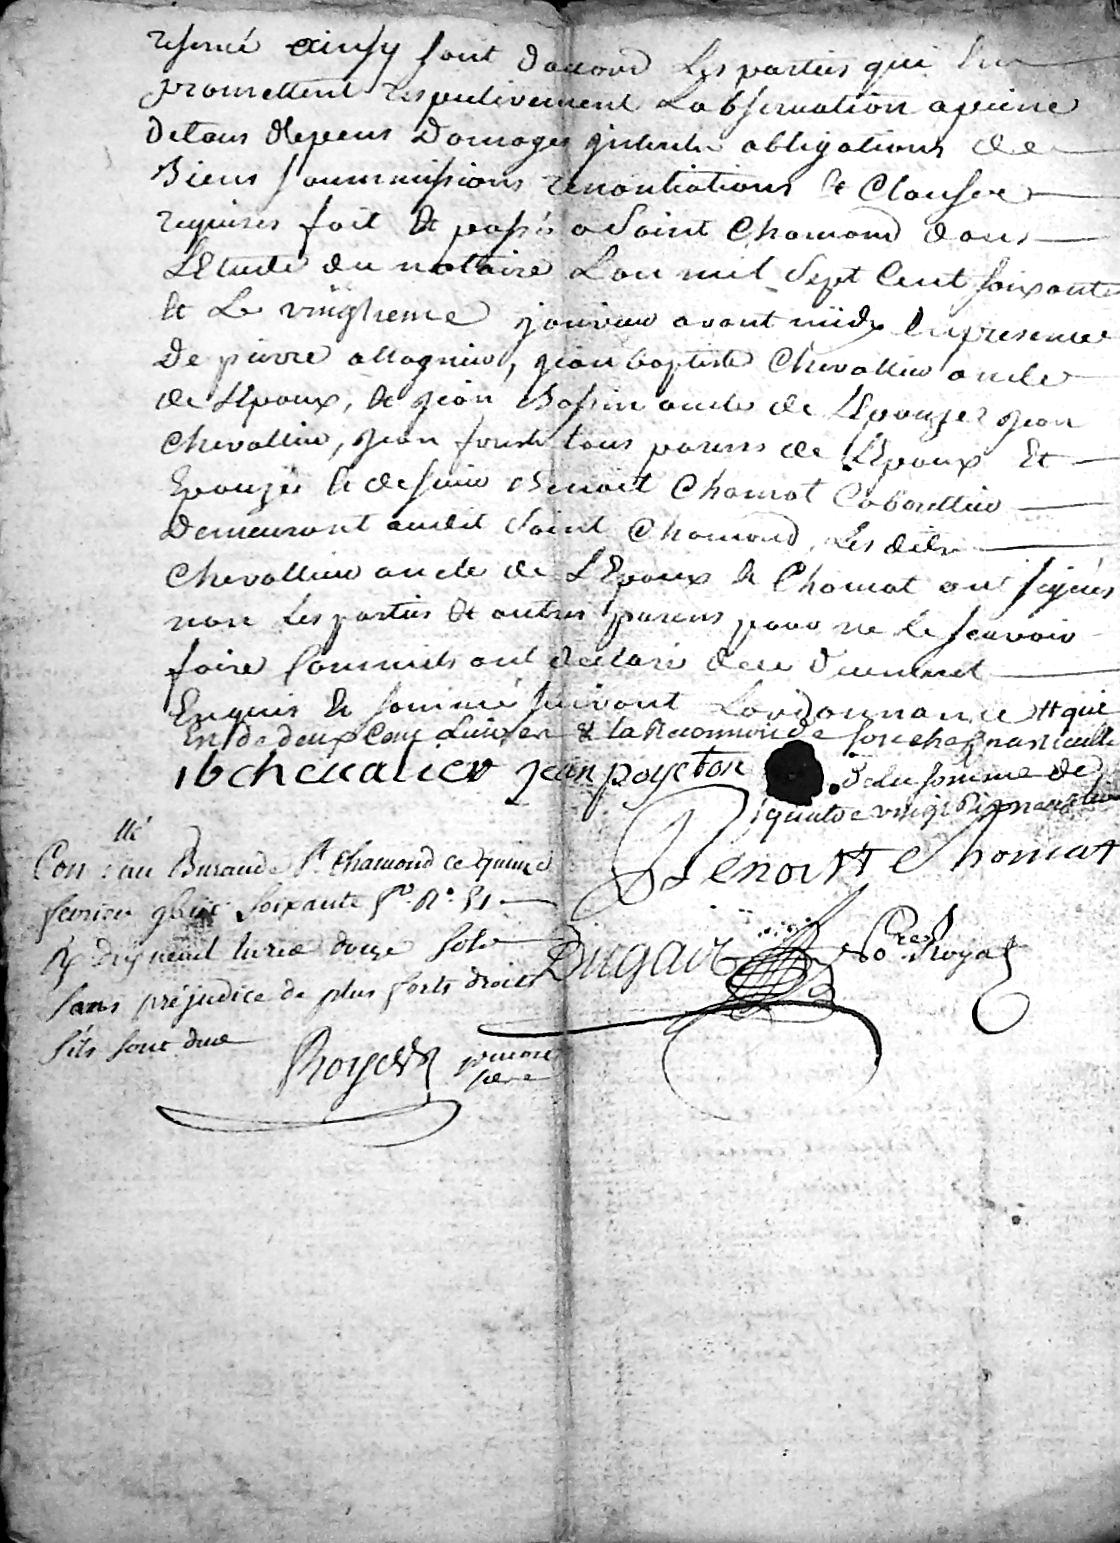 reservé ainsy sont daccord Les parties qui En
promettent respectivement Lobservation apeine
detous depens Domages jnterets obligations de
Biens soummissions renontiations & Clauses
requises fait & passé a Saint Chamond dans
LEtude du notaire Lan mil Sept Cent soixante
& Le vingtieme janvier avant midy En presence
De pierre allagnier, jean baptiste Chevallier oncle
de LEpoux, & jean oncle de LEpouze jean
Chevallier, jean tous parens de LEpoux Et
Epouze & de sieur Benoit Chomat Cabarettier
Demeurant audit Saint Chamond, Les dits
Chevallier oncle de LEpoux & Chomat ont signés
non Les parties & autres parens pour ne le scavoir
faire Comme ils ont declaré de ce Duement
Enquis & sommé suivant Lordonnance # qui
Est de deux Cent Livres & la Reconnoi de son chef
ib chevalier jean poyeton de la somme de
quatre vingt dix neuf
Benoitt Chomat
llé
Con au Bureau de St. Chamond ce quinze
fevrier gbiic soixante fo. No. 51
Rx dix neuf livres douze sols
Sans préjudice de plus forts droits
s'ils sont due
Dugair No.re Royal